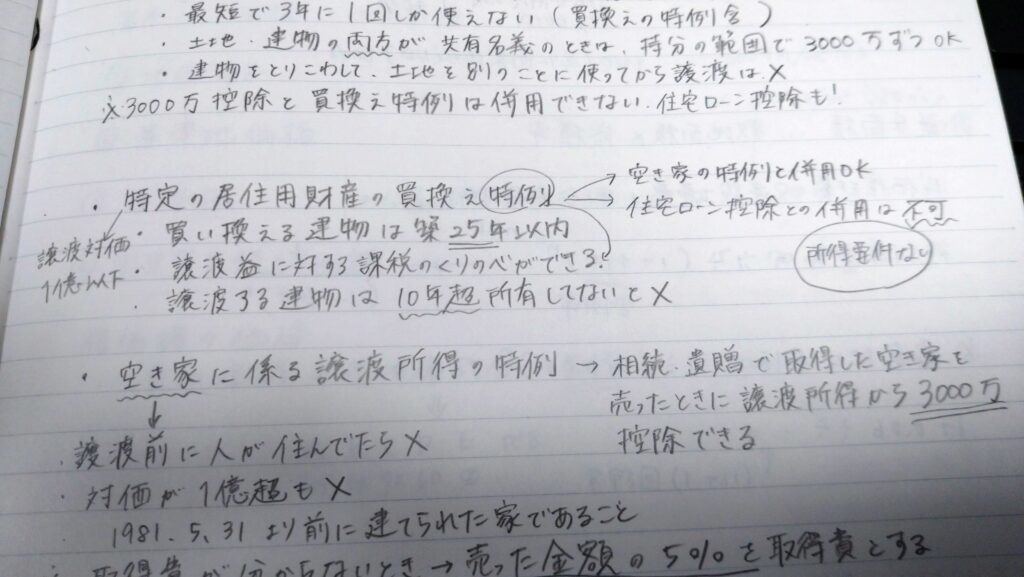 ・最短で3年に1回しか使えない(買換えの特例含)
・土地・建物の両方が共有名義のときは、持分の範囲で3000万ずつOK
・建物をとりこわして、土地を別のことに使ってから譲渡は×
※3000万控除と買換え特例は併用できない。住宅ローン控除も!
・特定の居住用財産の買換え特例
→空き家の特例と併用OK
→住宅ローン控除との併用は不可
所得要件なし
譲渡対価
1億以下
・買い換える建物は築25年以内
・譲渡益に対する課税のくりのべができる!
・譲渡する建物は10年超所有してないと×
・空き家に係る譲渡所得の特例→相続・遺贈で取得した空き家を
売ったときに譲渡所得から3000万
控除できる
・譲渡前に人が住んでたら×
・対価が1億超も×
1981.5.31より前に建てられた家であること
・取得費が分からないとき→売った金額の5%を取得費とする